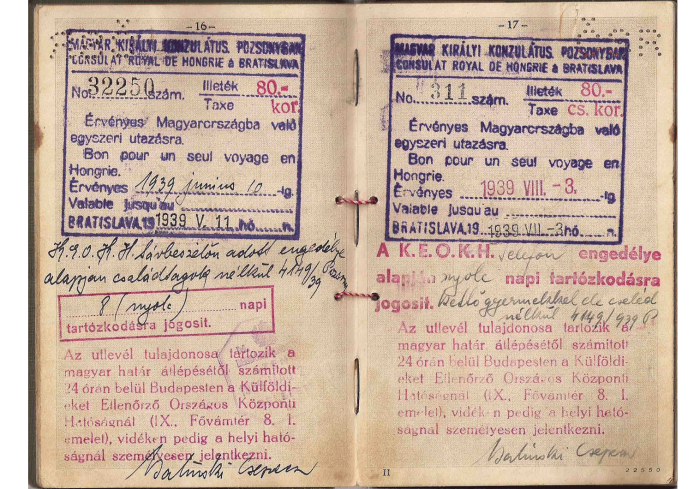 - 16 -
MAGYAR KIRÁLYI KONZULÁTUS. POZSONYBAN
CONSULAT ROYAL DE HONGRIE à BRATISLAVA
No. 32250 szám. Illeték 80.-
Taxe kor.
Érvényes Magyarországba való
egyszeri utazásra.
Bon pour un seul voyage en
Hongrie.
Érvényes 1939 junius 10 -ig.
Valable jusqu'au
BRATISLAVA,19 1939 V. 11. hó. n.
K.E.O.K.H. távbeszélőn adott engedélye
alapján családtagok nélkül 4149/39
8 (nyolc) napi
tartózkodásra jogosit.
Az utlevél tulajdonosa tartozik a
magyar határ átlépésétől számitott
24 órán belül Budapesten a Külföldi-
eket Ellenőrző Országos Központi
Hatóságnál (IX., Fővámtér 8. I.
emelet), vidéken pedig a helyi ható-
ságnál személyesen jelentkezni.
- 17 -
MAGYAR KIRÁLYI KONZULÁTUS. POZSONYBAN
CONSULAT ROYAL DE HONGRIE à BRATISLAVA
No. 311 szám. Illeték 80.-
Taxe cs. kor.
Érvényes Magyarországba való
egyszeri utazásra.
Bon pour un seul voyage en
Hongrie.
Érvényes 1939 VIII. -3. -ig.
Valable jusqu'au
BRATISLAVA,19 1939 VII. -3 hó. n.
A K.E.O.K.H. telefon engedélye
alapján nyolc napi tartózkodásra
jogosit. gyermekkel de család
nélkül 4149/939
Az utlevél tulajdonosa tartozik a
magyar határ átlépésétől számitott
24 órán belül Budapesten a Külföldi-
eket Ellenőrző Országos Központi
Hatóságnál (IX., Fővámtér 8. I.
emelet), vidéken pedig a helyi ható-
ságnál személyesen jelentkezni.
II